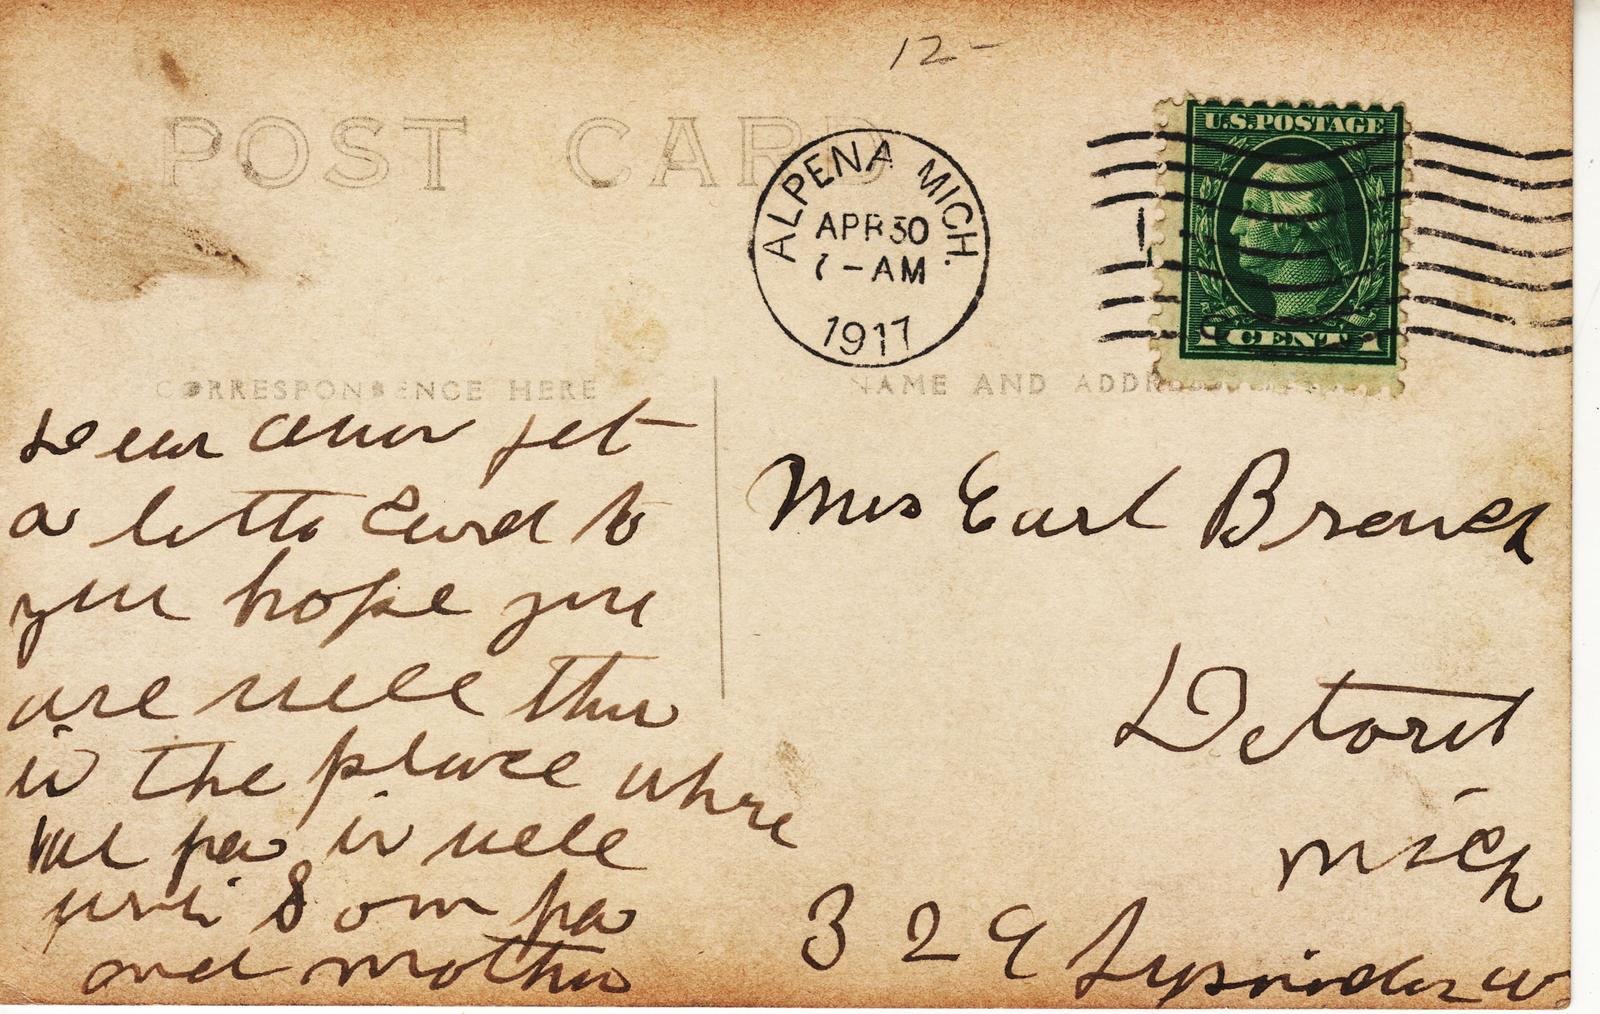 12-
POST CARD
ALPENA MICH.
APR 30
7-AM
1917
U.S. POSTAGE
1 CENT 1
CORRESPONDENCE HERE
NAME AND ADDRESS HERE
Dear jet
a letto Card to
you hope you
are well this
is the place where
pa is well
8 om pa
and mother
Mrs Earl Branch
Detorit
Mich
329 w